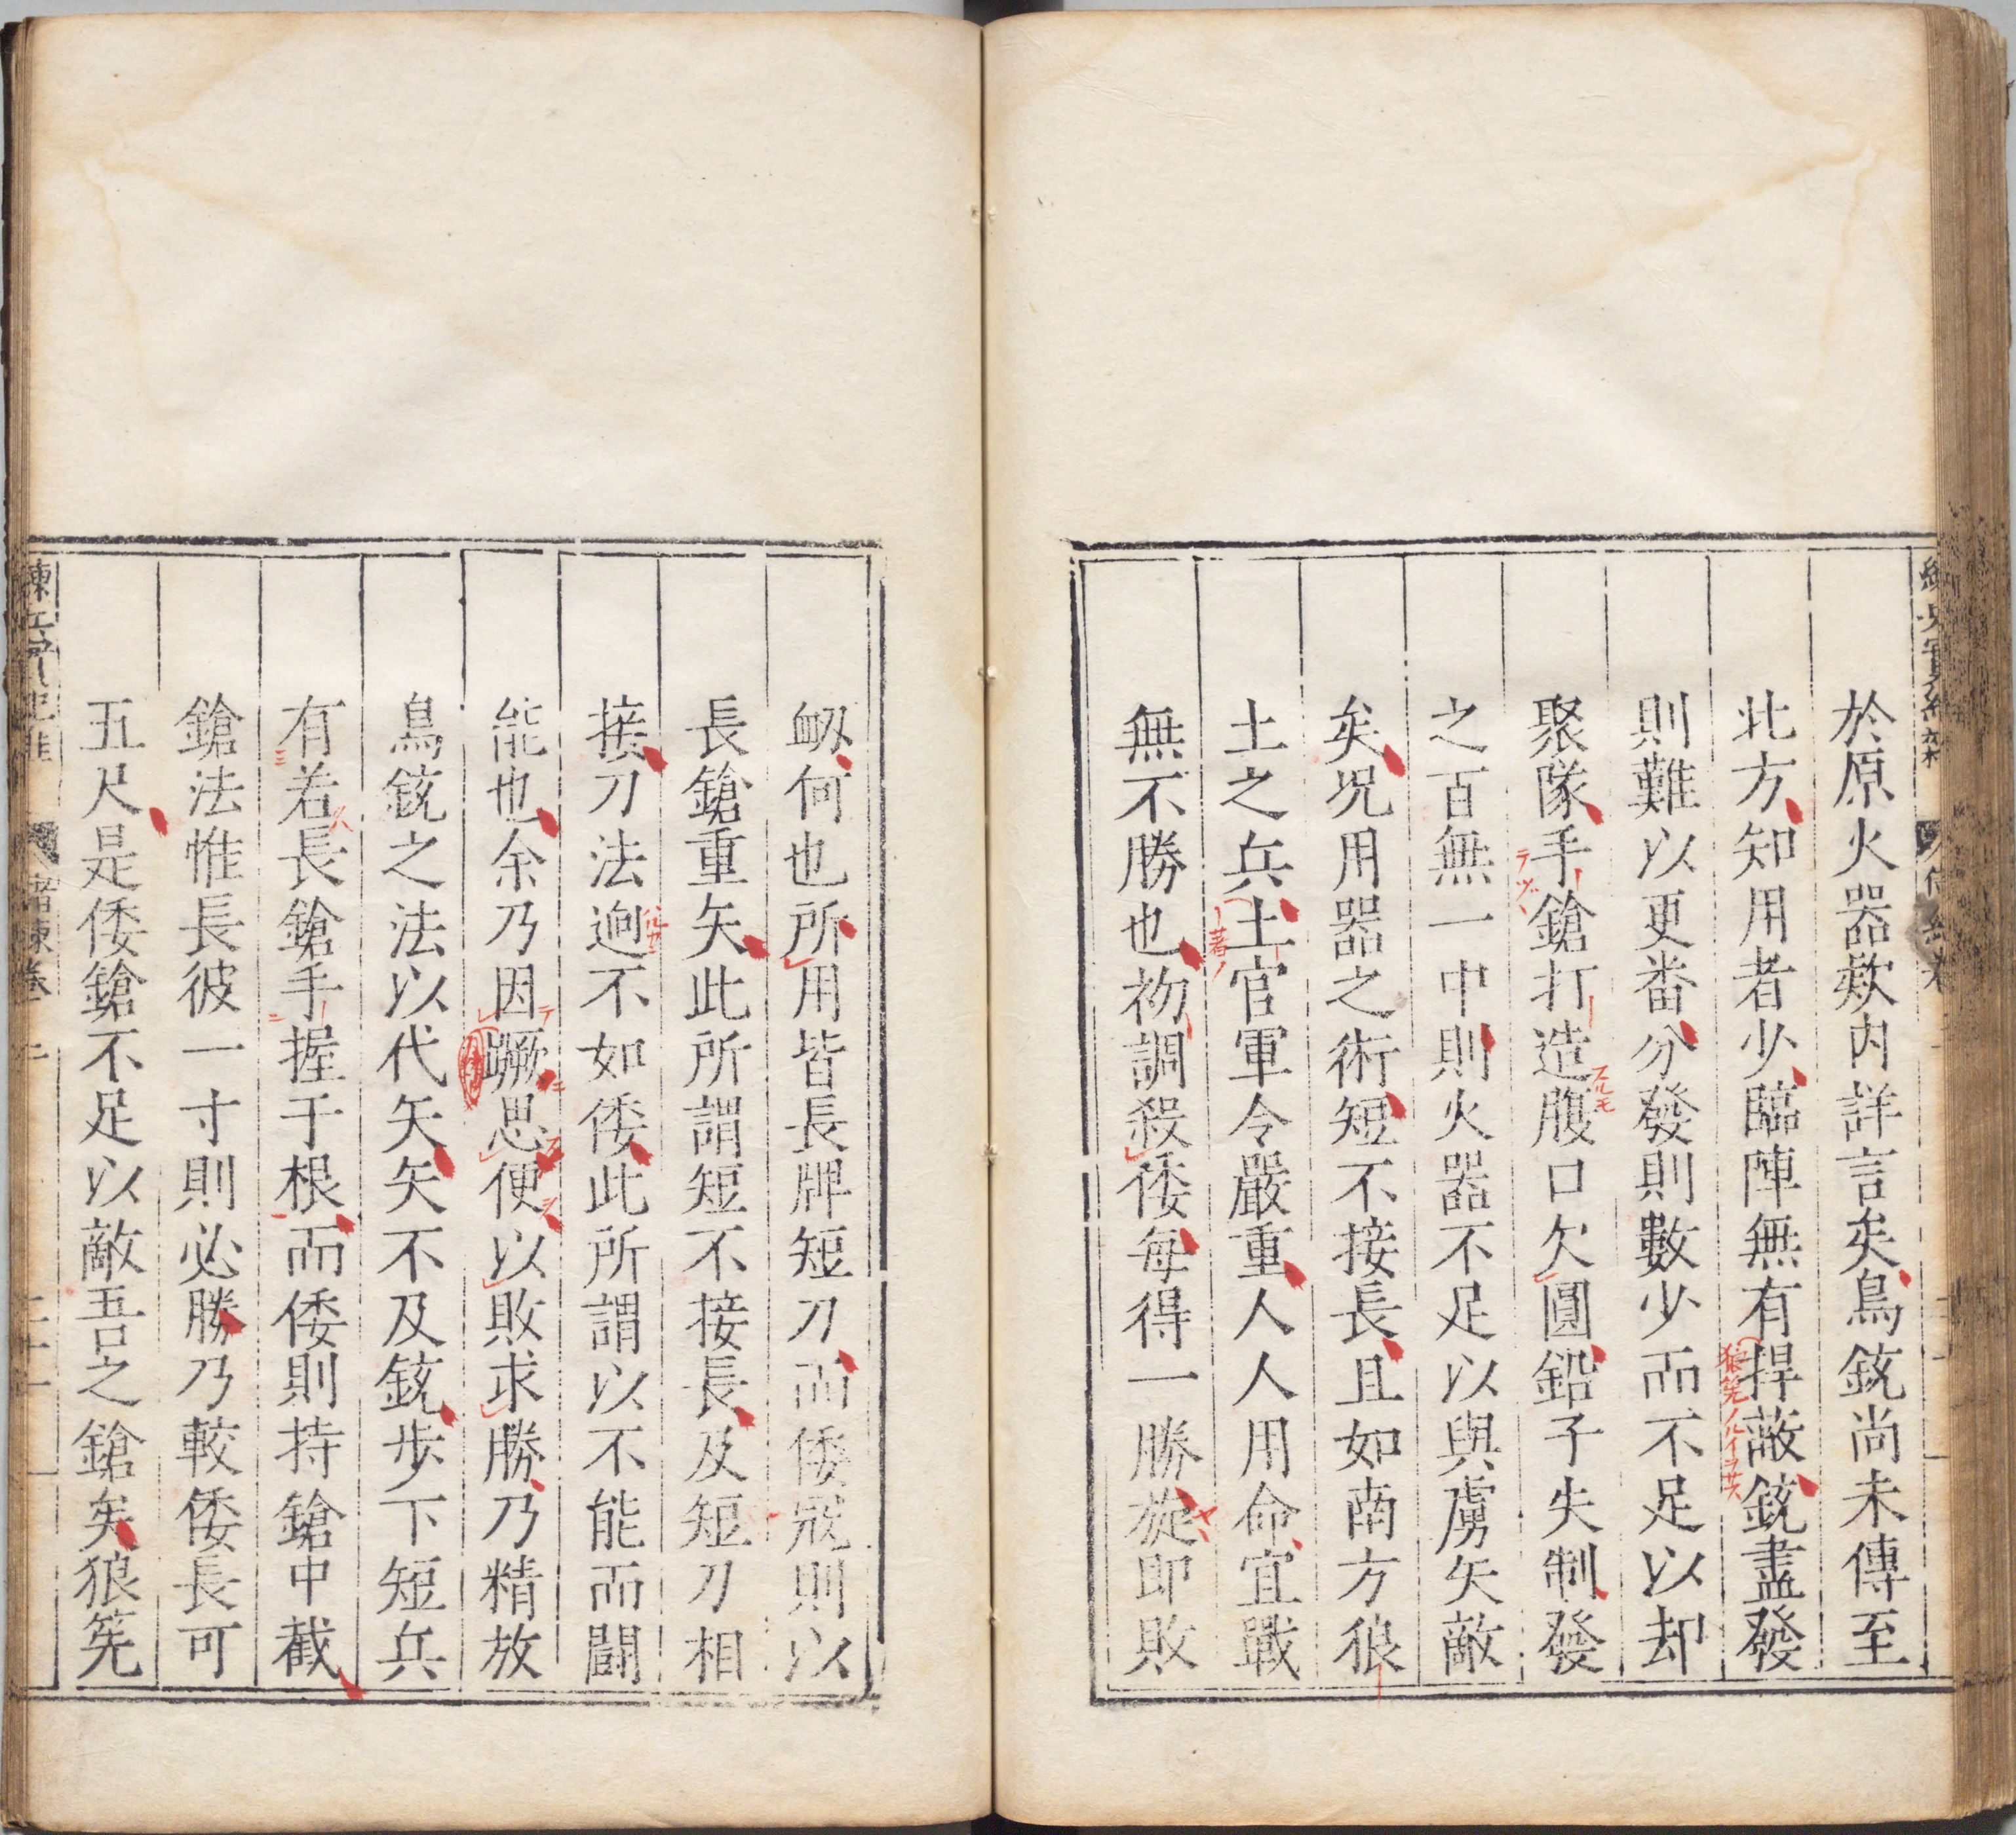 於原火器欵內詳言矣鳥銃尚未傳至
北方知用者少臨陣無有捍蔽銃盡發
則難以更番分發則數少而不足以却
聚隊手鎗打造腹口欠圓鉛子失制發
之百無一中則火器不足以與虜矢敵
矣况用器之術短不接長且如南方狼
土之兵土官軍令嚴重人人用命宜戰
無不勝也初調殺倭每得一勝旋即敗
衂何也所用皆長牌短刀而倭宼則以
長鎗重矢此所謂短不接長及短刀相
接刀法逈不如倭此所謂以不能而鬪
能也余乃因蹶思便以敗求勝乃精放
鳥銃之法以代矢矢不及銃步下短兵
有若長鎗手握于根而倭則持鎗中截
鎗法惟長彼一寸則必勝乃較倭長可
五尺是倭鎗不足以敵吾之鎗矣狼筅